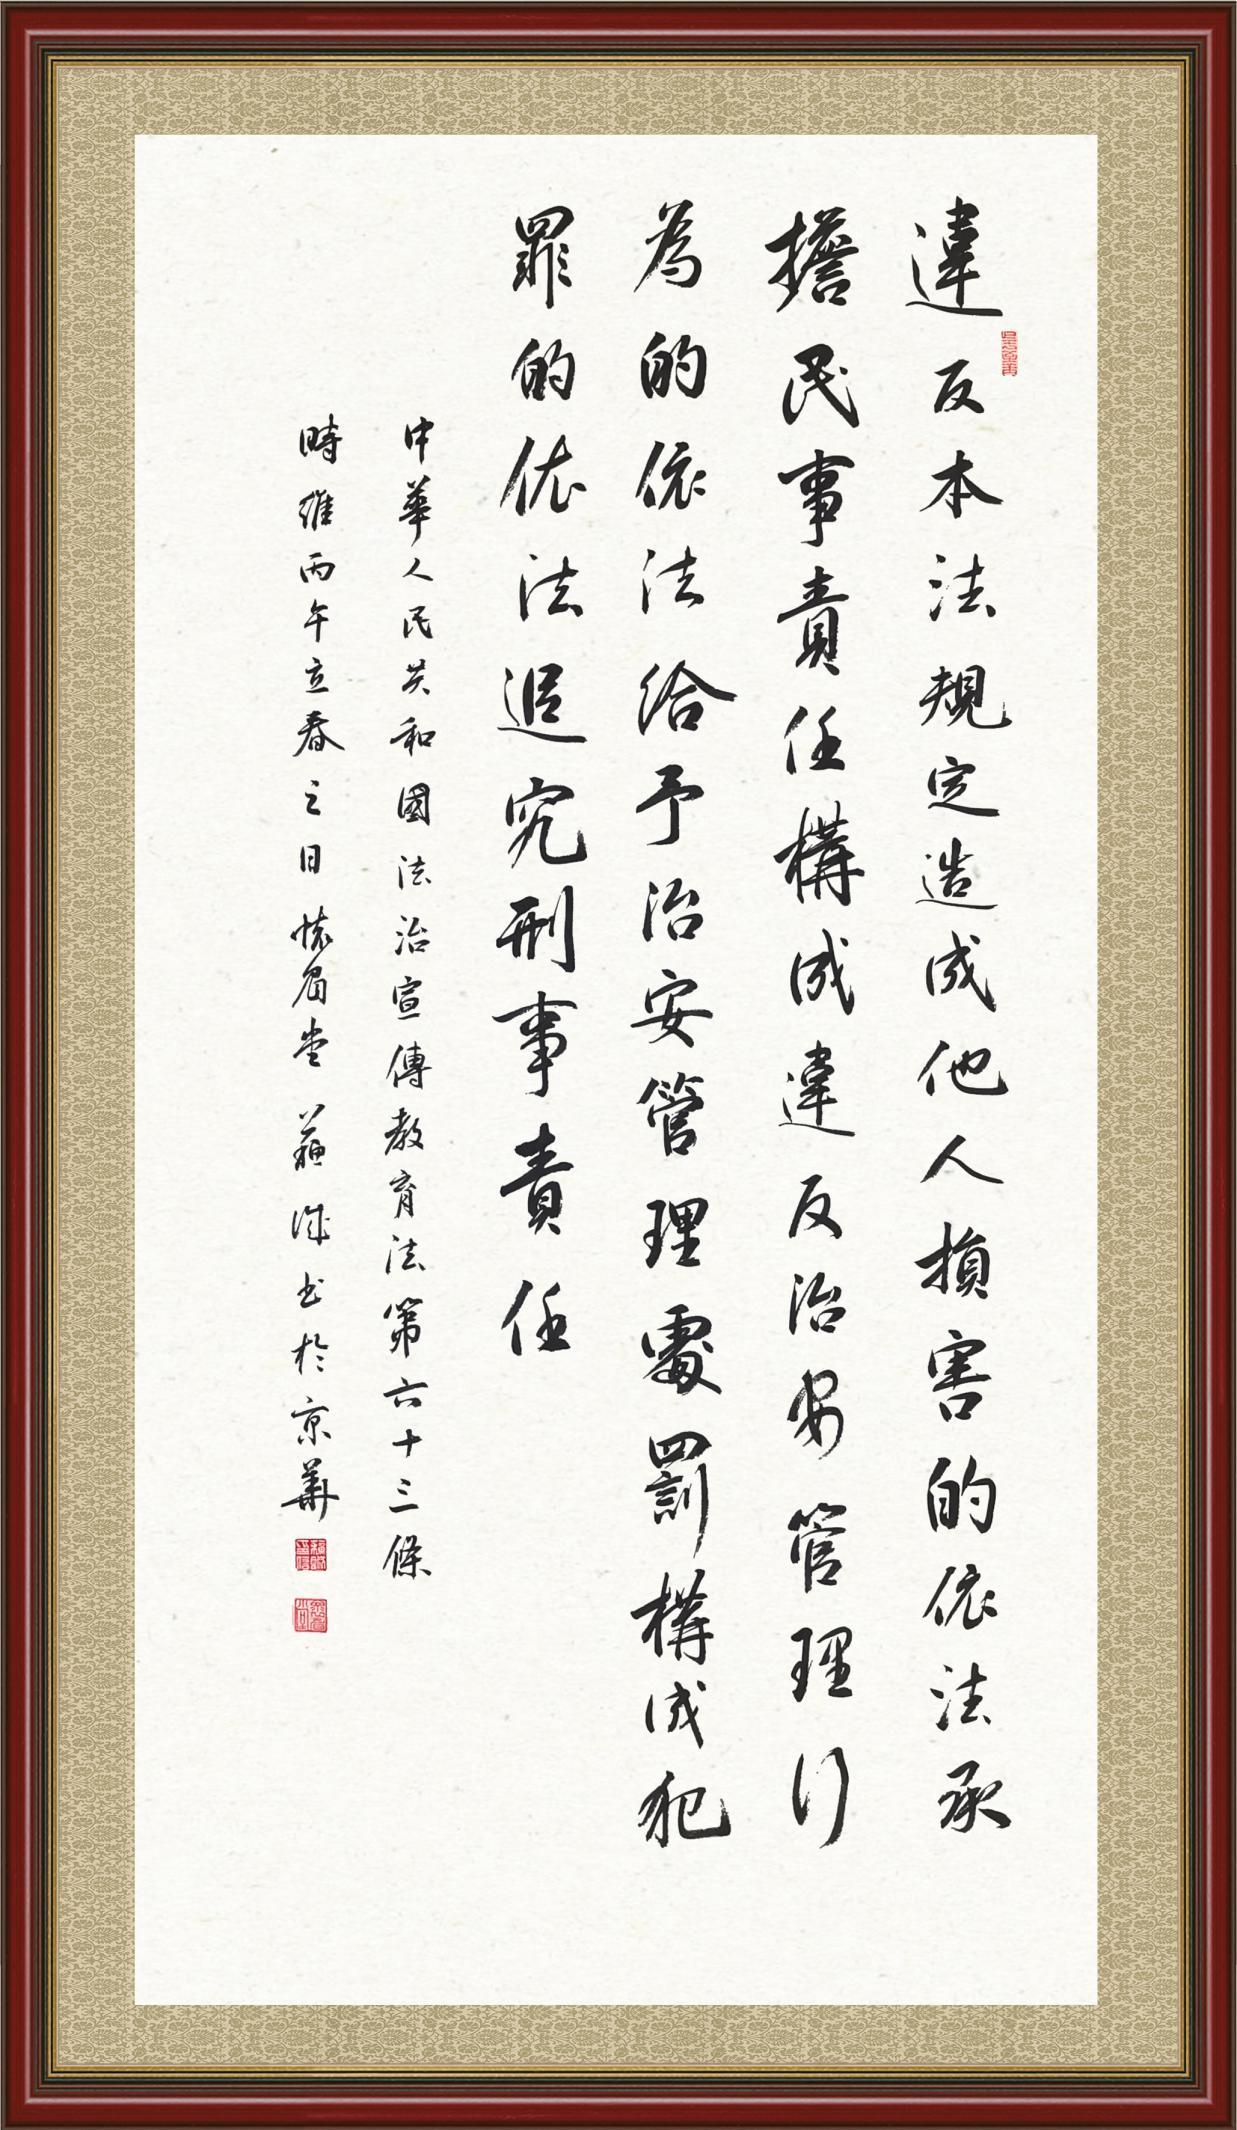 違反本法規定造成他人損害的依法承
擔民事責任構成違反治安管理行
為的依法給予治安管理處罰構成犯
罪的依法追究刑事責任
中華人民共和國法治宣傳教育法第六十三條
時維丙午立春之日懷眉堂蘇誠書於京華